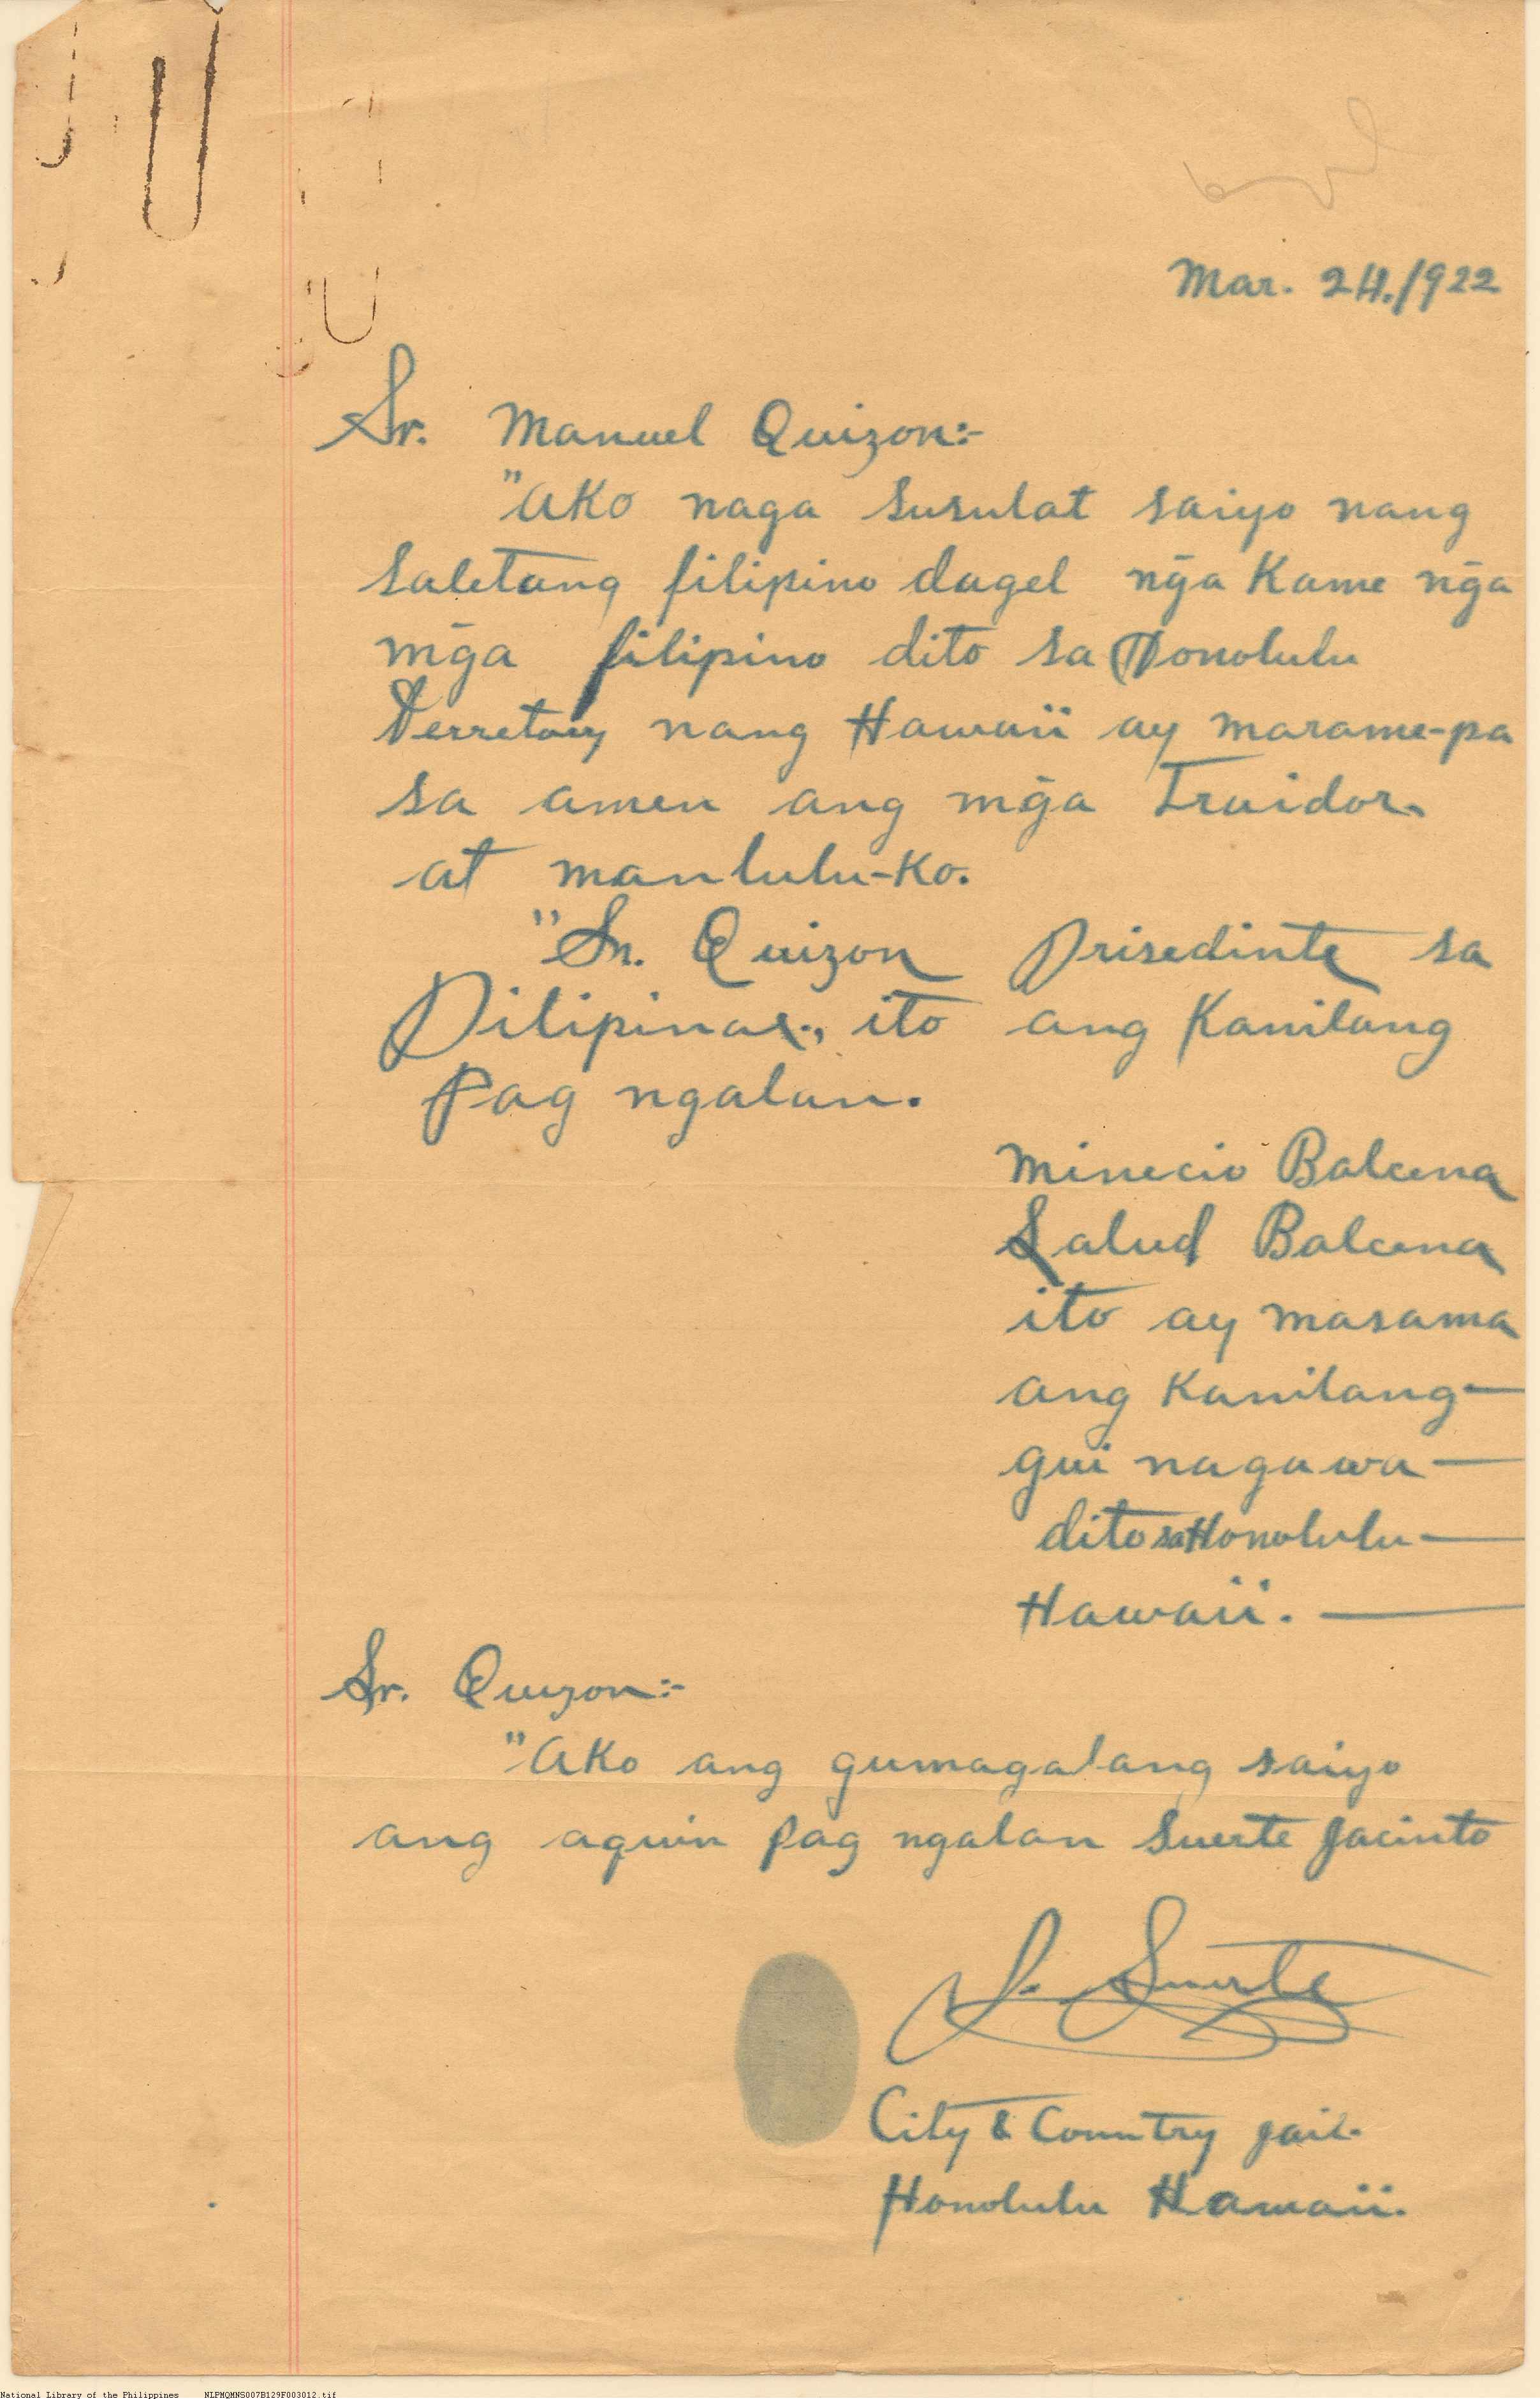 Mar. 24./1922
Sr. Manuel Quizon:-
"Ako naga susulat saiyo nang
saletang filipino dagel nḡa Kame nḡa
mḡa filipino dito sa Honolulu
Terretory nang Hawaii ay marame-pa
sa amen ang mḡa Traidor.
at manlulu-Ko.
"Sr. Quizon Prisedinte sa
Pilipinas., ito ang Kanilang
Pag ngalan.
Minecio Balcena
Salud Balcena
ito ay masama
ang Kanilang—
gui nagawa—
dito sa Honolulu—
Hawaii.—
Sr. Quizon:-
"Ako ang gumagalang saiyo
ang aquin Pag ngalan Suerte Jacinto
J. Suerte
City & Country jail.
Honolulu Hawaii.
National Library of the Philippines NLPMQMNS007B129F003012.tif